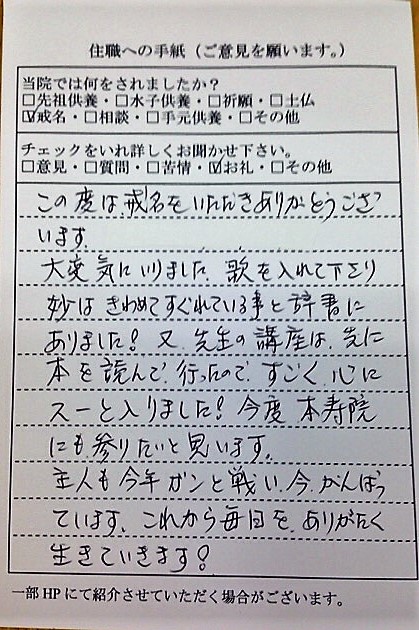 住職への手紙（ご意見を願います。）
当院では何をされましたか？
□先祖供養・□水子供養・□祈願・□土仏
☑戒名・□相談・□手元供養・□その他
チェックをいれ詳しくお聞かせ下さい。
□意見・□質問・□苦情・☑お礼・□その他
この度は戒名をいただきありがとうござ
います
大変気にいりました。歌を入れて下さり
妙は きわめてすぐれている事と辞書に
ありました！又、先生の講座は、先に
本を読んで、行ったので、すごく心に
スーと入りました！今度 本寿院
にも参りたいと思います。
主人も今年ガンと戦い、今、がんばっ
ています。これから毎日を、ありがたく
生きていきます！
一部HPにて紹介させていただく場合がございます。